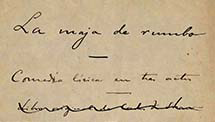 La maja de rumbo
Comedia lírica en tres actos